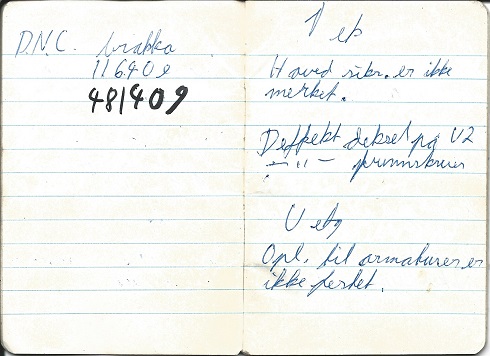 D.N.C. brakka
11640 e
481409
1 etg
Hoved sikr. er ikke
merket.
Deffekt deksel på V2
— " —
U etg
Opl. til armaturer er
ikke festet.